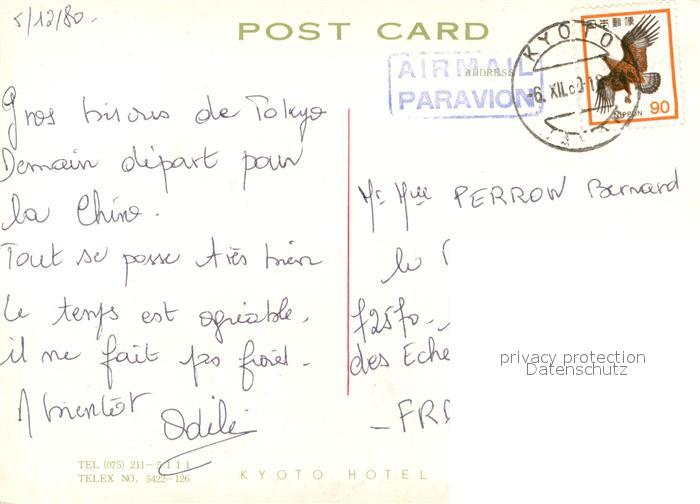 5/12/80.
POST CARD
AIRMAIL
PARAVION
ADDRESS
KYOTO
6.XII.80.18
日本郵便
NIPPON 90
Gros bisous de Tokyo
Demain départ pour
la Chine.
Tout se passe très bien
Le temps est agréable.
il ne fait pas froid.
A bientôt
Odile
Mr Mme PERRON Bernard
le
des Eche
privacy protection
Datenschutz
TEL (075) 211-5111
TELEX NO. 5422-126
KYOTO HOTEL